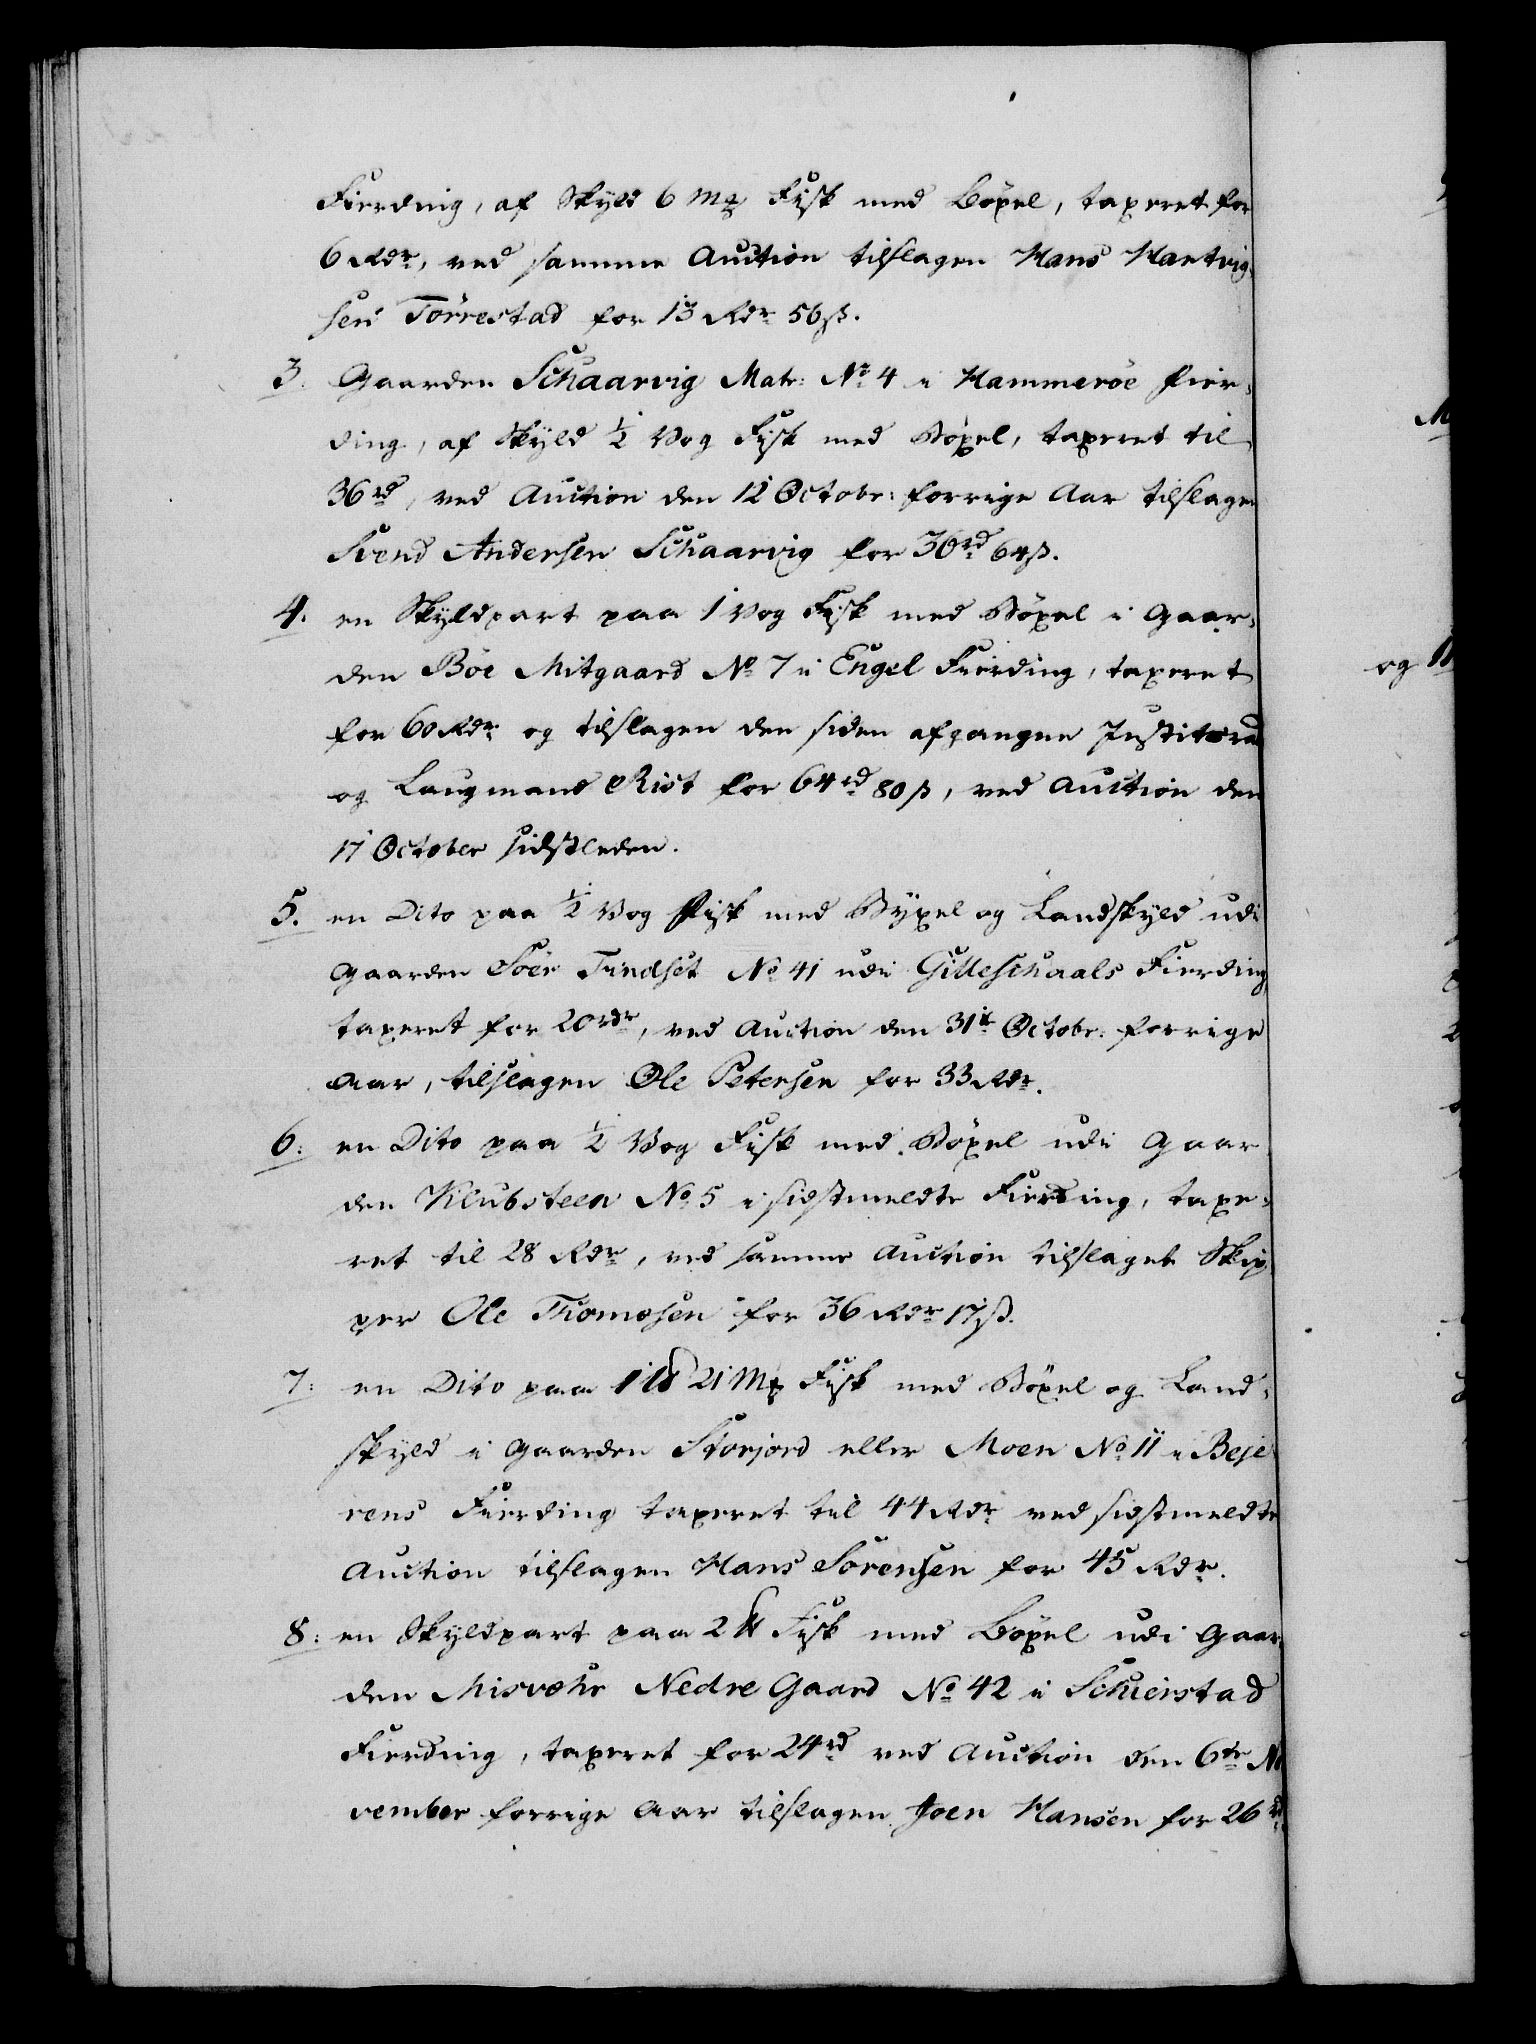 Fierding, af Skyld 6 Mꝝ Fisk med Böxel, taxeret for
6 Rdr, ved samme Auction tilslagen Hans Hartvig-
sen Törrestad for 13 Rdr 56 ß.
3. Gaarden Schaarvig Matr: No 4 i Hammeröe Fier-
ding, af Skyld ½ Vog Fisk med Böxel, taxeret til
36 rd, ved Auction den 12 Octobr: forrige Aar tilslagen
Svend Andersen Schaarvig for 36 rd 64 ß.
4. en Skyldpart paa 1 Vog Fisk med Böxel i Gaar-
den Böe Mitgaard No 7 i Engel Fierding, taxeret
for 60 Rdr og tilslagen den siden afgangne Justitsraad
og Laugmand Rist for 64 rd 80 ß, ved Auction den
17 October sidstleden.
5. en Dito paa ½ Vog Fisk med Byxel og Landskyld udi
Gaarden Söer Findset No 41 udi Gilleschaals Fierding,
taxeret for 20 rdr, ved Auction den 31te Octobr: forrige
Aar, tilslagen Ole Petersen for 33 Rdr.
6: en Dito paa ½ Vog Fisk med Böxel udi Gaar
den Klubsteen No 5 i sidstmeldte Fierding, taxe-
ret til 28 Rdr, ved samme Auction tilslaget Skip
per Ole Thomesen for 36 Rdr 17 ß.
7: en Dito paa 1 21 Mꝝ Fisk med Böxel og Land-
skyld i Gaarden Storjord eller Moen No 11 i Beje
rens Fierding taxeret til 44 Rdr ved sidstmeldte
Auction tilslagen Hans Sörensen for 45 Rdr.
8: en Skyldpart paa 2 Fisk med Böxel udi Gaar-
den Misvæhr Nedre Gaard No 42 i Schierstad
Fierding, taxeret for 24 rd ved Auction den 6te No
vember forrige Aar tilslagen Joen Hansen for 26 rd
og